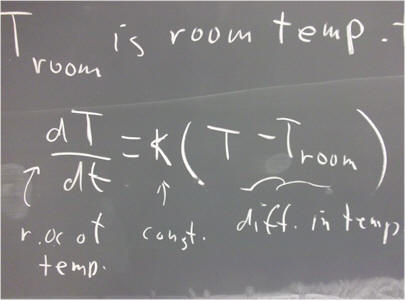 T room is room temp.
dT/dt = K ( T - T room )
r.oc of const. diff. in temp
temp.